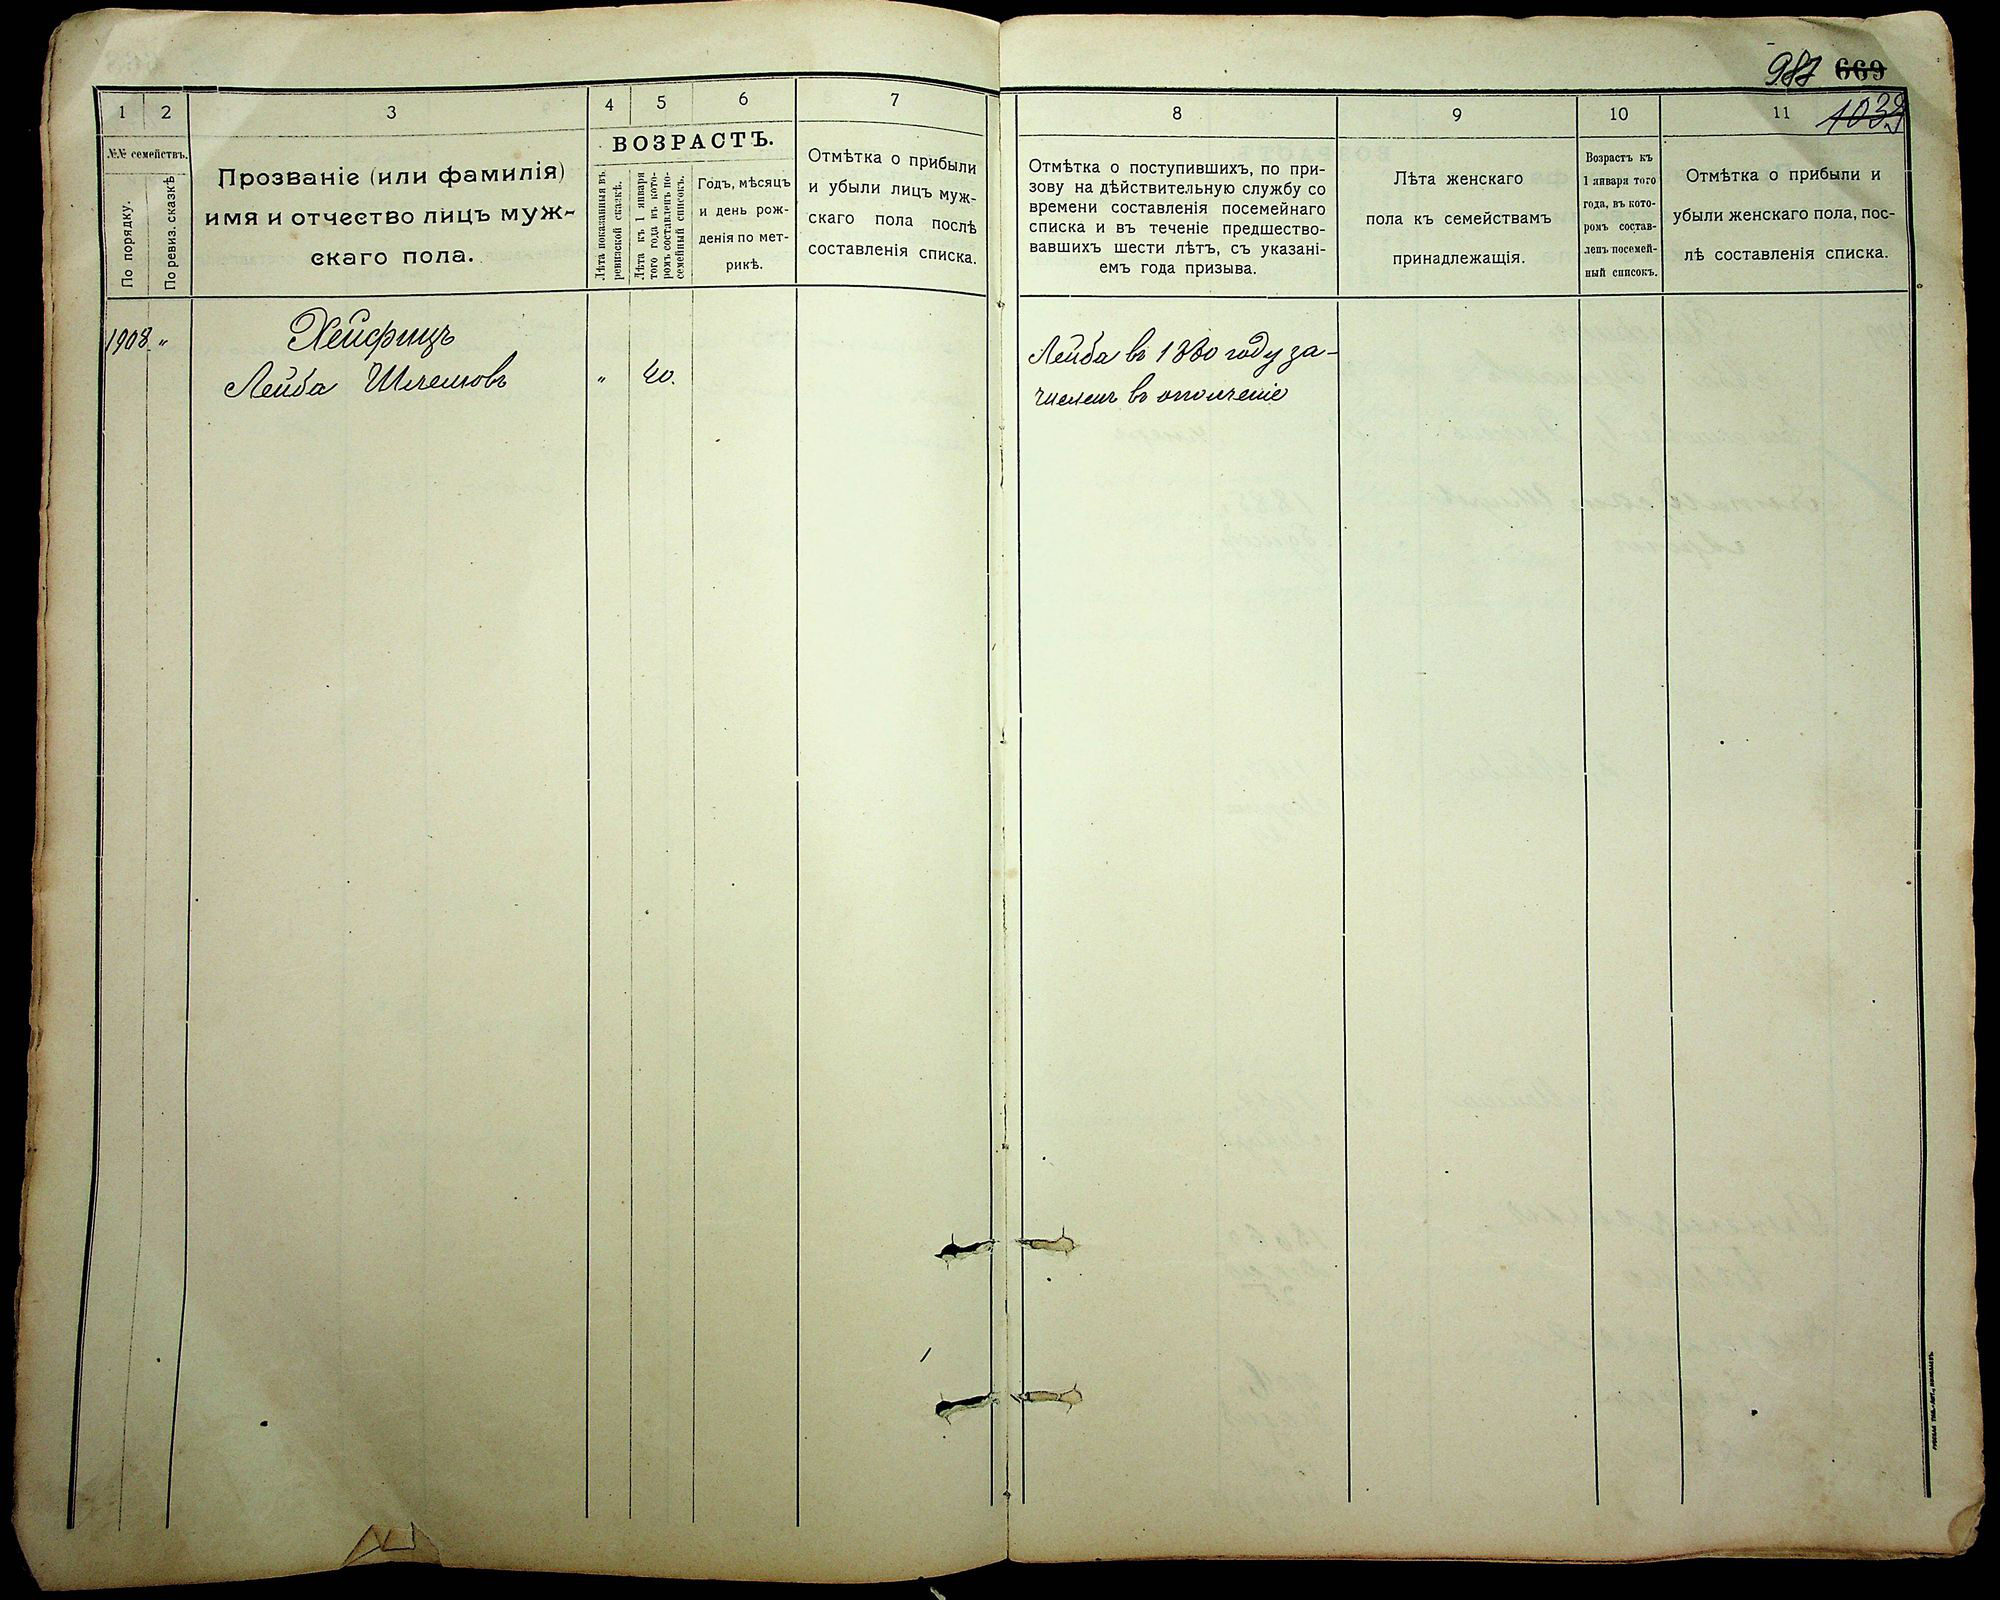 987 669
1039
1 2 3 4 5 6 7
№№ семействъ.
По порядку.
По ревиз. сказкѣ
Прозваніе (или фамилія)
имя и отчество лицъ муж-
скаго пола.
ВОЗРАСТЪ.
Лѣта показанныя въ
ревизской сказкѣ.
Лѣта къ 1 января
того года въ кото-
ромъ составленъ по-
семейный списокъ.
Годъ, мѣсяцъ
и день рож-
денія по мет-
рикѣ.
Отмѣтка о прибыли
и убыли лицъ муж-
скаго пола послѣ
составленія списка.
8 9 10 11
Отмѣтка о поступившихъ, по при-
зову на дѣйствительную службу со
времени составленія посемейнаго
списка и въ теченіе предшество-
вавшихъ шести лѣтъ, съ указані-
емъ года призыва.
Лѣта женскаго
пола къ семействамъ
принадлежащія.
Возрастъ къ
1 января того
года, въ кото-
ромъ состав-
ленъ посемей-
ный списокъ.
Отмѣтка о прибыли и
убыли женскаго пола, пос-
лѣ составленія списка.
1908 „ Хейфицъ
Лейба Шлемовъ „ 40.
Лейба въ 1880 году за-
численъ въ ополченіе